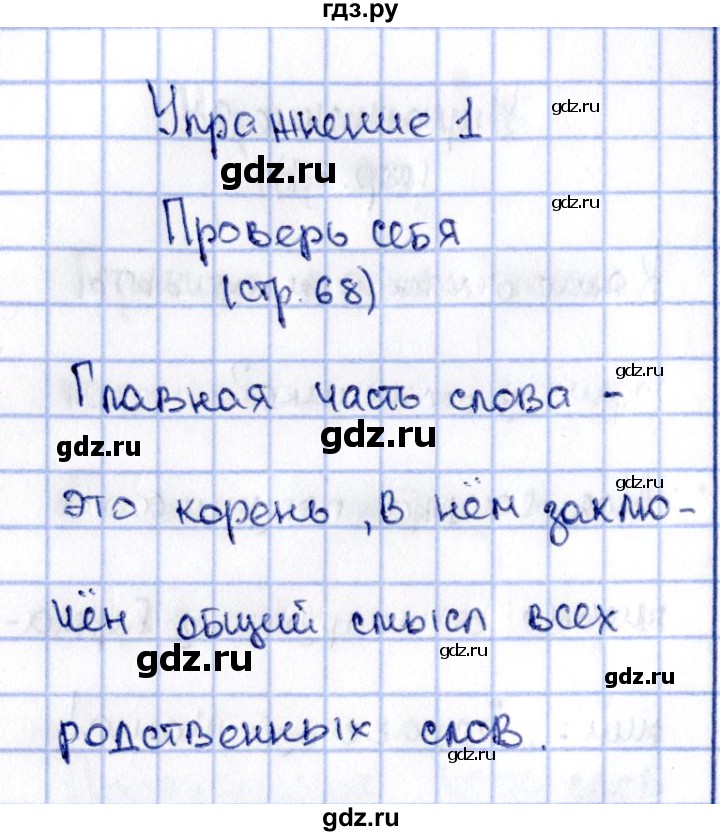 гдз.ру
Упражнение 1
gdz.ru
gdz.ru
Проверь себя
gdz.ru
(стр. 68)
Главная часть слова -
gdz.ru
gdz.ru
gdz.ru
это корень, в нём заклю-
gdz.ru
чён общий смысл всех
gdz.ru
gdz.ru
gdz.ru
родственных слов.
gdz.ru